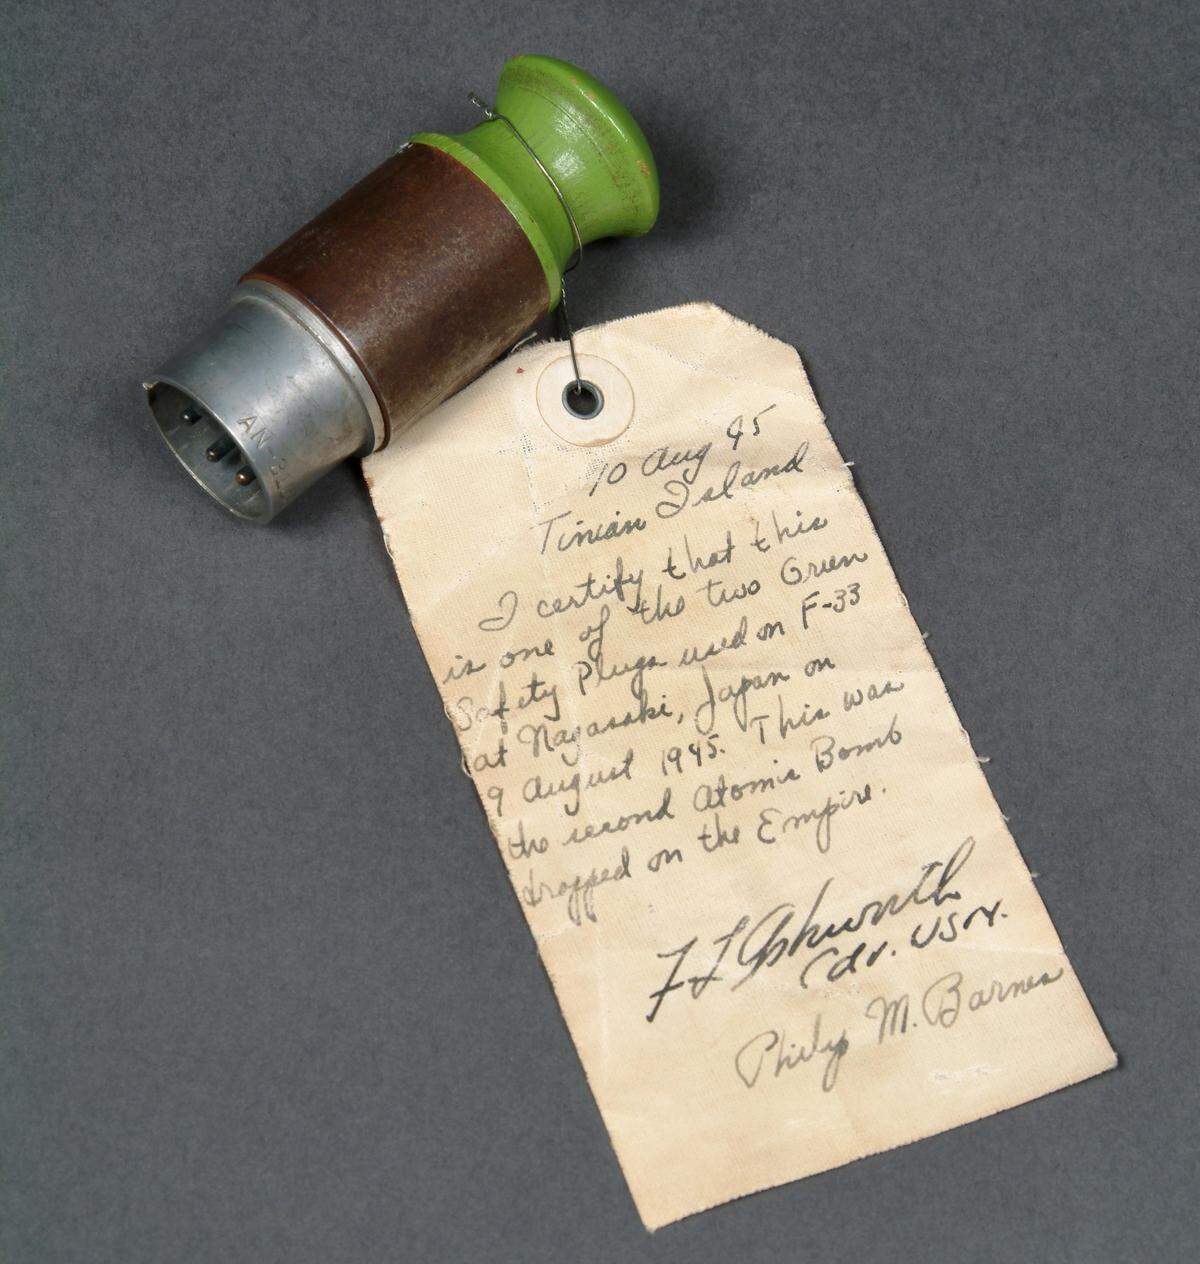 AN-3
10 Aug 45
Tinian Island
I certify that this
is one of the two Green
Safety Plugs used on F-33
at Nagasaki, Japan on
9 August 1945. This was
the second Atomic Bomb
dropped on the Empire.
F L Ashworth
Cdr. USN.
Philip M. Barnes